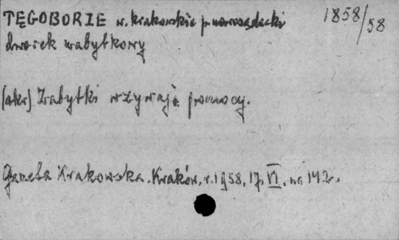 TĘGOBORZE w. krakowskie p. nowosądecki 1858/58
Dworek zabytkowy
(akr) Zabytki wzywają pomocy.
Gazeta Krakowska. Kraków, r. 1958, 17. VI, nr 142.